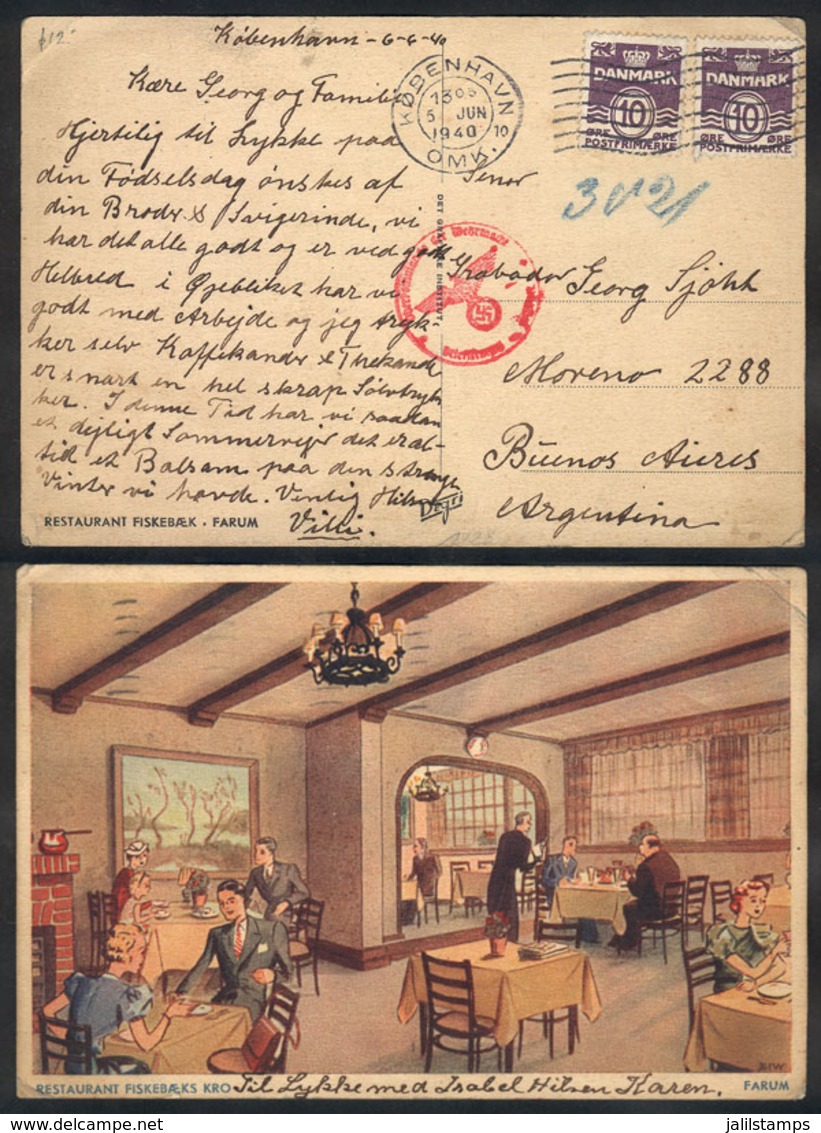 $12-
København - 6-6-40
Kære Georg og Familie
Hjertilig til Lykke paa
din Fødselsdag ønskes af
din Broder & Svigerinde, vi
har det alle godt og er ved godt
Helbred i Øjeblikket har vi
godt med Arbejde og jeg tryk-
ker selv Kaffekander & Thekand
er snart en hel skrap Sølvtryk
ker. I denne Tid har vi saadan
et dejligt Sommervejr det er al-
tid et Balsam paa den strenge
Vinter vi havde. Venlig Hilsen
Villi.
RESTAURANT FISKEBÆK · FARUM
KØBENHAVN
5 JUN
1940
10
OMK.
DANMARK
10
ØRE ØRE
POSTFRIMÆRKE
DANMARK
10
ØRE ØRE
POSTFRIMÆRKE
3021
Senor
Grabador Georg Sjöht
Moreno 2288
Buenos Aires
Argentina
Wehrmacht
INSTITUT
RESTAURANT FISKEBÆKS KRO Til Lykke med Isabel Hilsen Karen. FARUM
jalilstamps